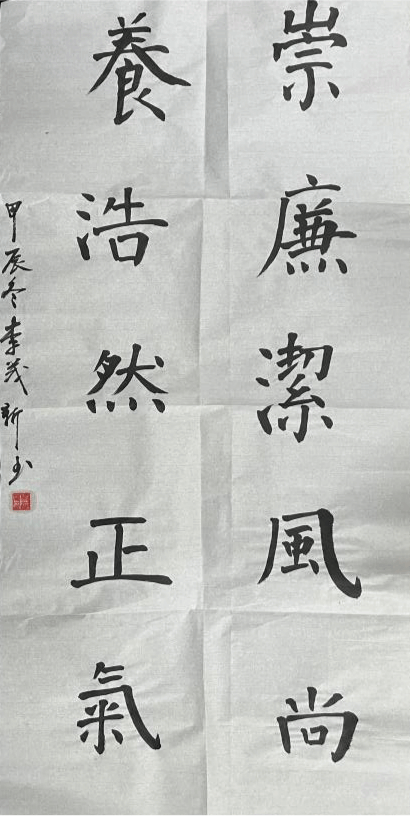 崇廉潔風尚
養浩然正氣
甲辰冬李茂新书